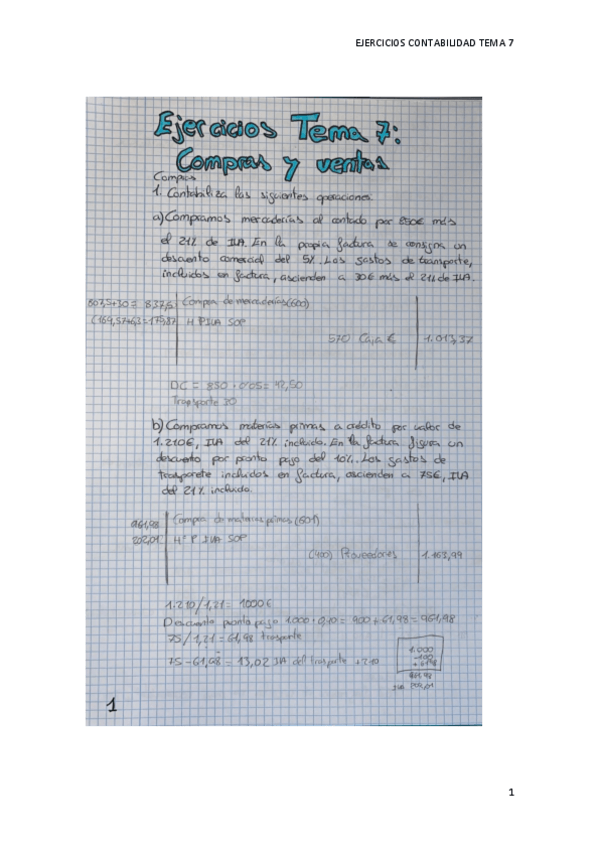 EJERCICIOS CONTABILIDAD TEMA 7
Ejercicios Tema 7:
Compras y ventas
Compras
1. Contabiliza las siguientes operaciones:
a) Compramos mercaderías al contado por 850€ más
el 21% de IVA. En la propia factura se consigna un
descuento comercial del 5%. Los gastos de transporte,
incluidos en factura, ascienden a 30€ más el 21% de IVA.
807,5+30 = 837,5 Compra de mercaderías (600)
(169,57+6,3=175,87 H P IVA SOP
570 Caja € 1.013,37
DC = 850 · 0'05 = 42,50
Transporte 30
b) Compramos materias primas a crédito por valor de
1.210€, IVA del 21% incluido. En la factura figura un
descuento por pronto pago del 10%. Los gastos de
transporete incluidos en factura, ascienden a 75€, IVA
del 21% incluido.
961,98 Compra de materias primas (601)
202,01 Hª P IVA SOP
(400) Proveedores 1.163,99
1.210/1,21 = 1000€
Descuento pronto pago 1.000 · 0,10 = 900 + 61,98 = 961,98
75/1,21 = 61,98 trasporte
75-61,98 = 13,02 IVA del trasporte +210
1.000
-100
+ 61,98
961,98
IVA 202,01
1
1